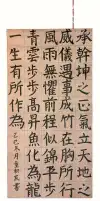 承幹坤之正氣立天地之
威儀遇事成竹在胸所行
風雨無懼前程似錦平步
青雲步步高昇魚化為龍
一生有所作為